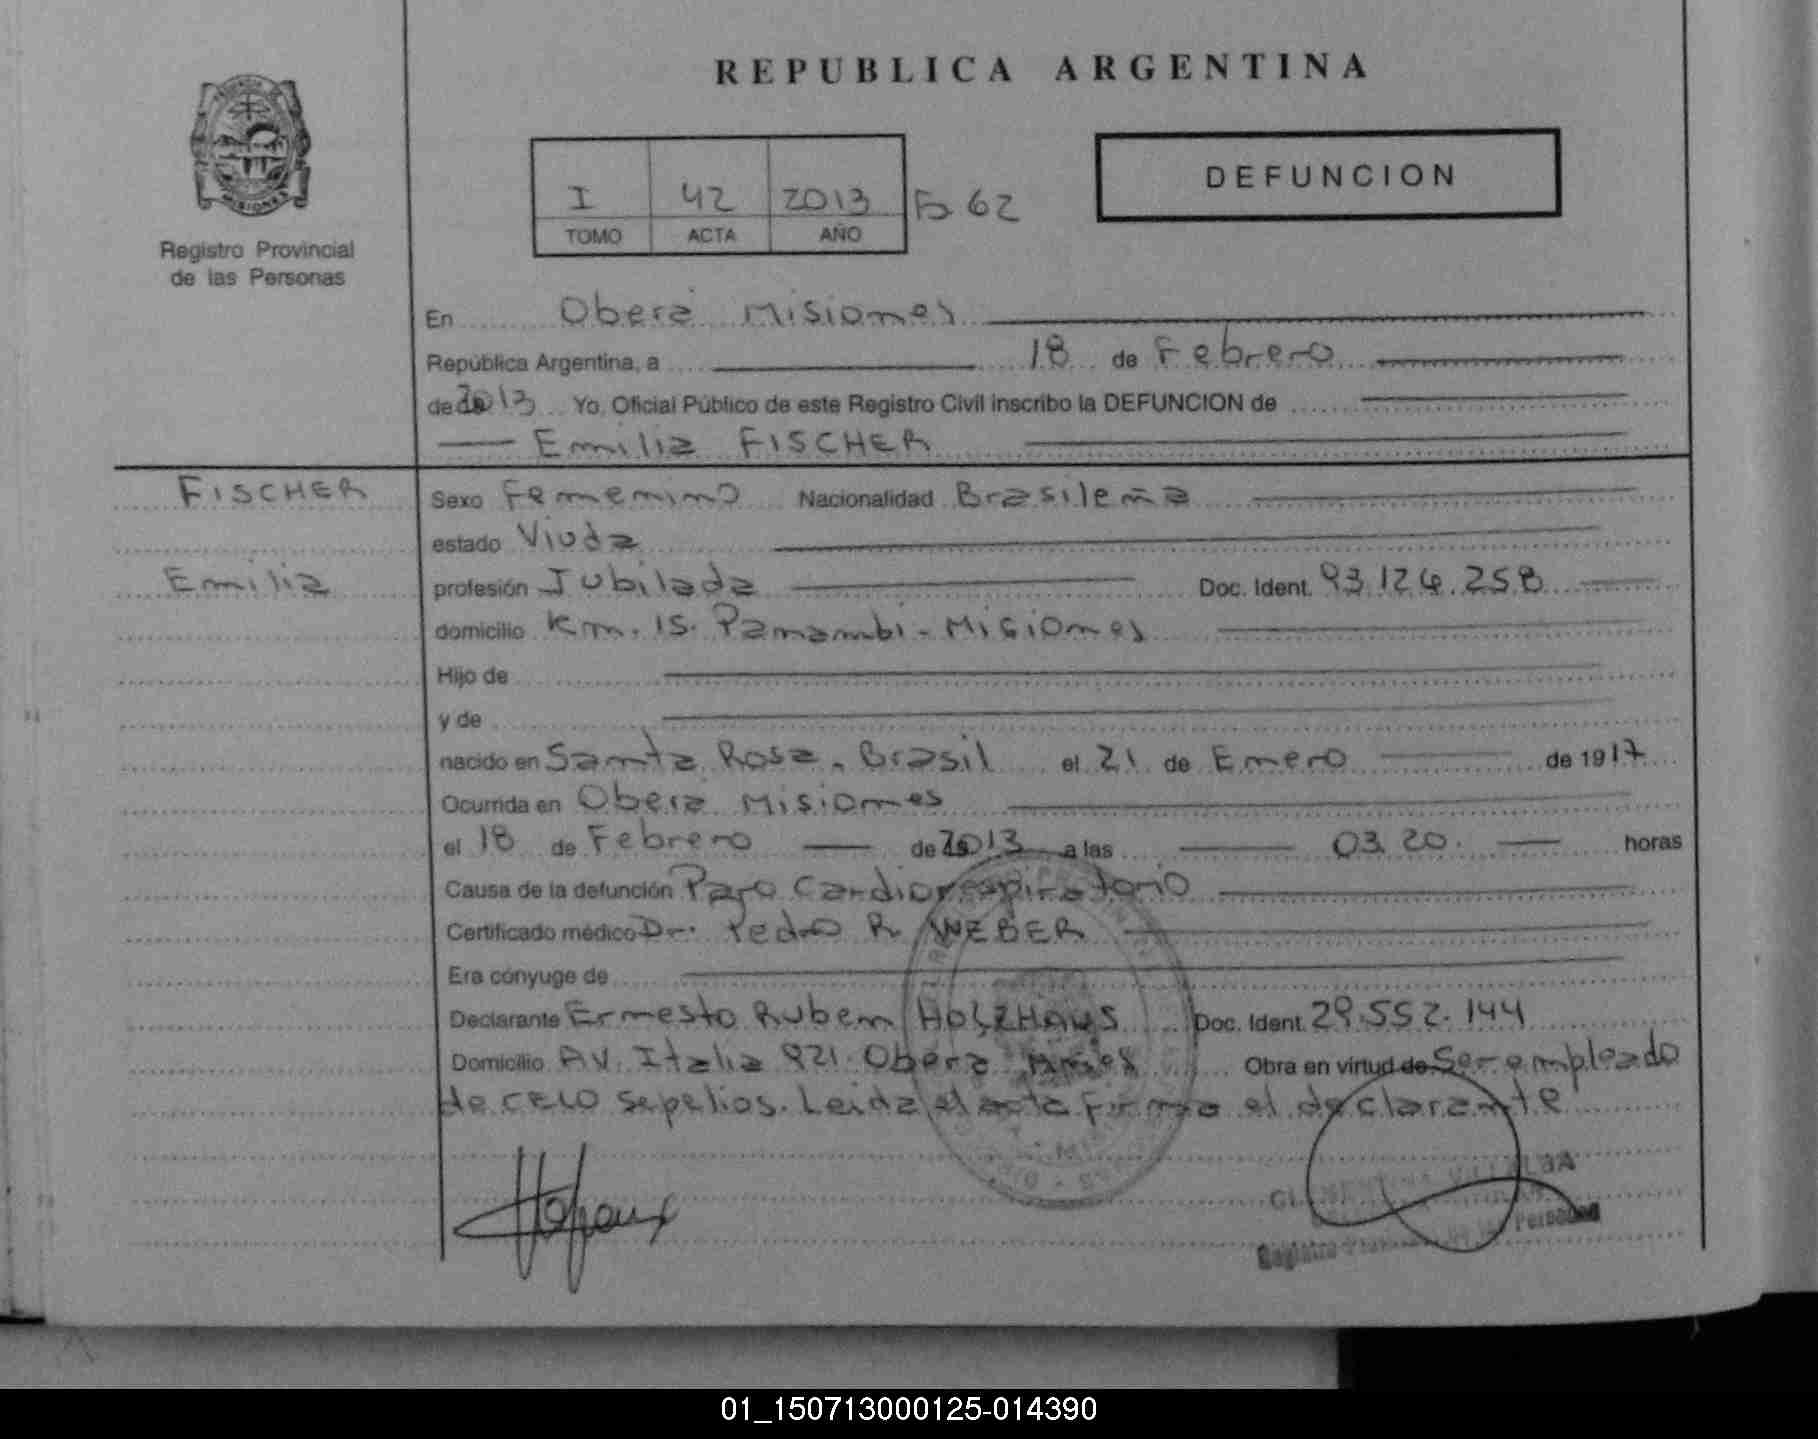 REPUBLICA ARGENTINA
MISIONES
Registro Provincial
de las Personas
I 42 2013 Fº 62
TOMO ACTA AÑO
DEFUNCION
En Oberá Misiones
República Argentina, a 18 de Febrero
de 2013 Yo, Oficial Público de este Registro Civil inscribo la DEFUNCION de
Emilia FISCHER
FISCHER
Emilia
Sexo Femenino Nacionalidad Brasileña
estado Viuda
profesión Jubilada Doc. Ident. 93.124.258
domicilio Km. 15. Panambi - Misiones
Hijo de
y de
nacido en Santa Rosa - Brasil el 21 de Enero de 1917
Ocurrida en Obera Misiones
el 18 de Febrero de 2013 a las 03.20. horas
Causa de la defunción Paro Cardiorespiratorio
Certificado médico Dr. Pedro R. WEBER
Era cónyuge de
Declarante Ernesto Ruben HOLZHAUS Doc. Ident. 29.552.144
Domicilio AV. Italia 921 Obera Mnes Obra en virtud de Ser empleado
de CELO Sepelios. Leida el acta firma el declarante
VILLALBA
Registro de las Personas
01_150713000125-014390